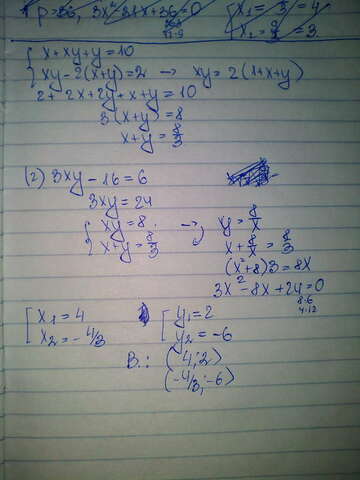 p=36, 3x² 8x+x+36=0 [x₁= 3 = 4
x₂= 9 = 3.
{ x+xy+y=10
{ xy-2(x+y)=2 → xy=2(1+x+y)
2+2x+2y+x+y=10
3(x+y)=8
x+y=8/3
(2) 3xy-16=6
3xy=24
{ xy=8. → y=8/x
{ x+y=8/3 x+8/x=8/3
(x²+8)3=8x
3x²-8x+24=0
8·6
4·12
[ x₁=4 [ y₁=2
[ x₂=-4/3 [ y₂=-6
B.: (4;2)
(-4/3;-6)